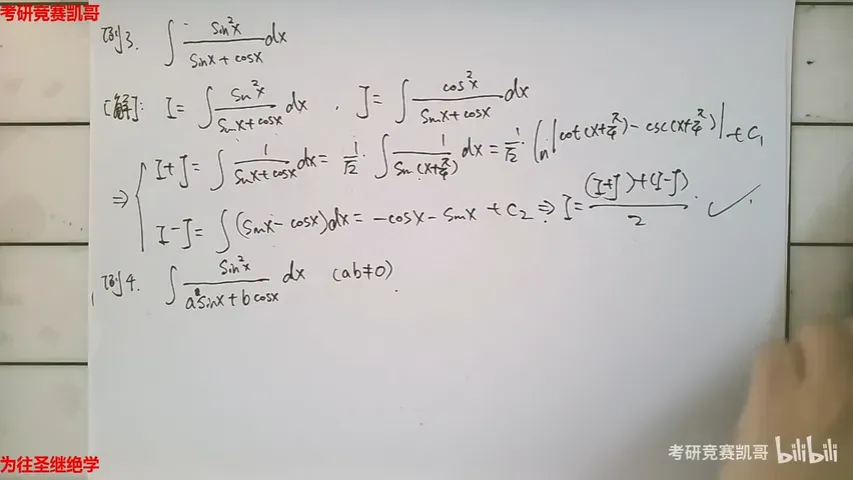 考研竞赛凯哥
例3. ∫ sin²x/(sinx+cosx) dx
[解]: I = ∫ sin²x/(sinx+cosx) dx , J = ∫ cos²x/(sinx+cosx) dx
⇒ { I+J = ∫ 1/(sinx+cosx) dx = 1/√2 · ∫ 1/sin(x+π/4) dx = 1/√2 · ln|cot(x+π/4) - csc(x+π/4)| + C₁
I-J = ∫ (sinx-cosx)dx = -cosx-sinx + C₂ ⇒ I = ((I+J)+(I-J))/2 . ✓
例4. ∫ sin²x/(a sinx+b cosx) dx (ab≠0)
为往圣继绝学
考研竞赛凯哥 bilibili